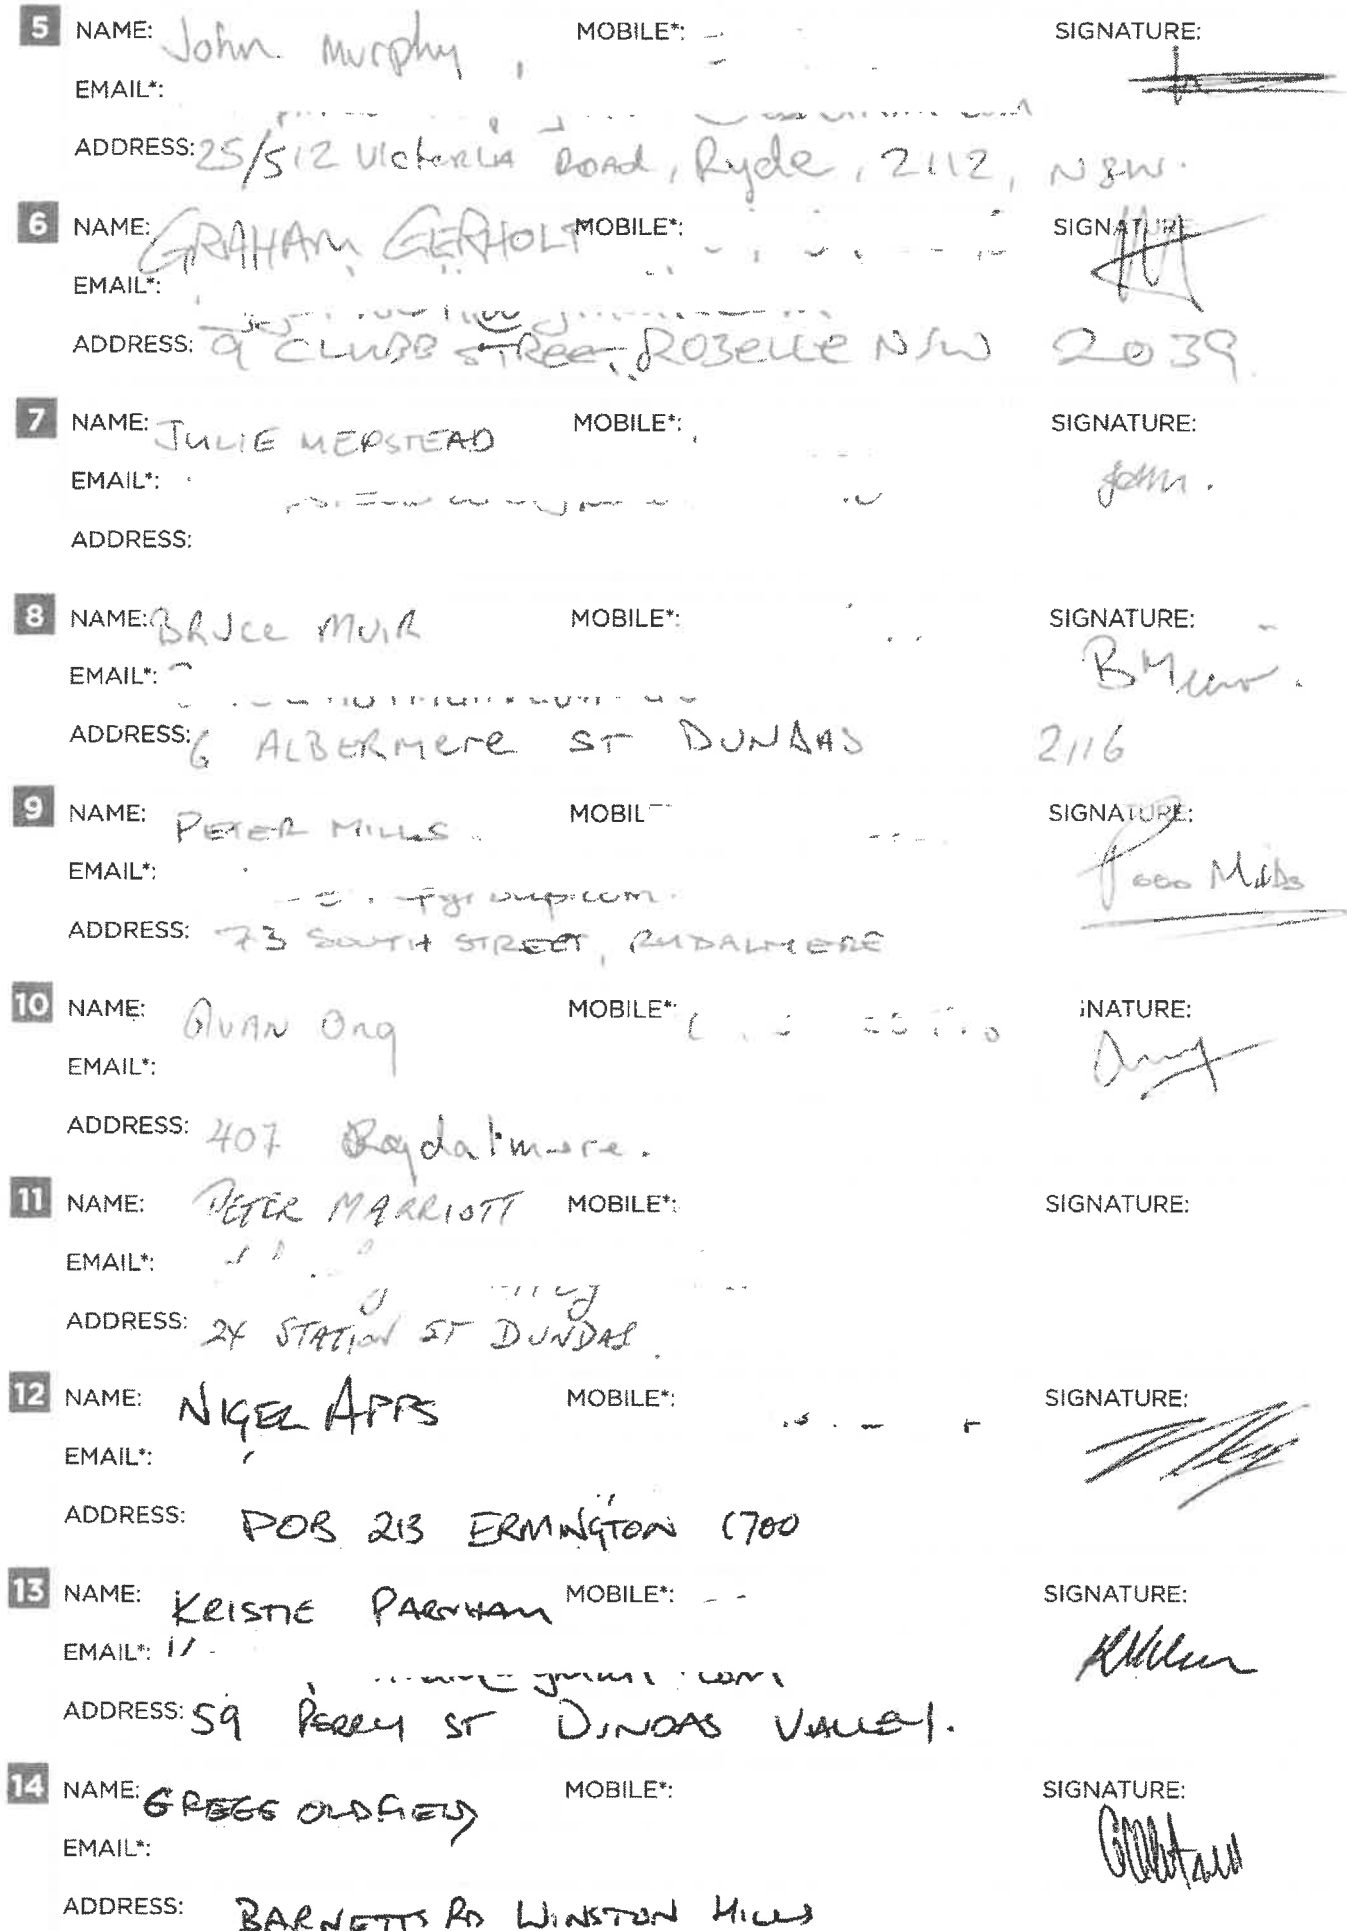 5 NAME: John Murphy MOBILE*: SIGNATURE:
EMAIL*:
ADDRESS: 25/512 Victoria Road, Ryde, 2112, NSW.
6 NAME: GRAHAM GERHOLT MOBILE*: SIGNATURE
EMAIL*:
ADDRESS: 9 CLUBB STREET, ROZELLE NSW 2039
7 NAME: JULIE MERSTEAD MOBILE*: SIGNATURE:
EMAIL*:
ADDRESS:
8 NAME: BRUCE MUIR MOBILE*: SIGNATURE:
EMAIL*: B Muir.
ADDRESS: 6 ALBERMERE ST DUNDAS 2116
9 NAME: PETER MILLS MOBIL SIGNATURE:
EMAIL*: Mills
ADDRESS: 73 SOUTH STREET, RYDALMERE
10 NAME: QUAN Ong MOBILE*: NATURE:
EMAIL*:
ADDRESS: 407 Rydalmere.
11 NAME: PETER MARRIOTT MOBILE*: SIGNATURE:
EMAIL*:
ADDRESS: 24 STATION ST DUNDAS.
12 NAME: NIGEL APPS MOBILE*: SIGNATURE:
EMAIL*:
ADDRESS: POB 213 ERMINGTON 1700
13 NAME: KRISTIE PARNHAM MOBILE*: SIGNATURE:
EMAIL*:
ADDRESS: 59 PERRY ST DUNDAS VALLEY.
14 NAME: GREGG OLDFIELD MOBILE*: SIGNATURE:
EMAIL*:
ADDRESS: BARNETTS RD WINSTON HILLS